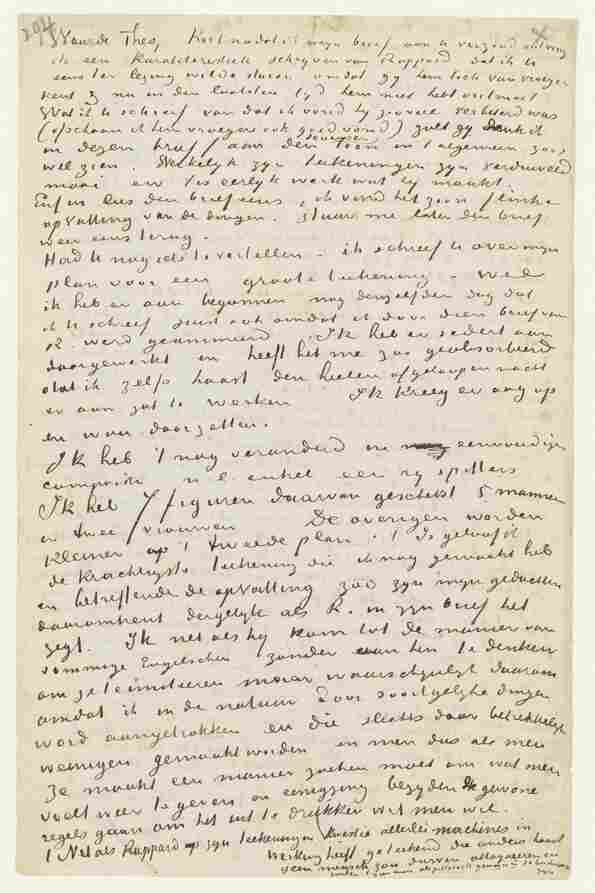 204
Waarde Theo, Kort nadat ik mijn brief aan U verzond ontving
ik een karakteristiek schrijven van Rappard dat ik U
eens ter lezing wilde sturen omdat gij hem toch van vroeger
kent & nu in den laatsten tijd hem niet hebt ontmoet.
Wat ik U schreef van dat ik vond hij zooveel verbeterd was
(ofschoon ik hem vroeger ook goed vond) zult gij denk ik
in dezen brief aan den toon in 't algemeen zoo
wel zien. Werkelijk zijn teekeningen zijn verduiveld
mooi en 't is eerlijk werk wat hij maakt.
Enfin lees den brief eens, ik vond het zoon flinke
opvatting van de dingen. Stuur me later den brief
weer eens terug.
Had U nog iets te vertellen – ik schreef U over mijn
plan voor een groote teekening – wel
ik heb er aan begonnen nog denzelfden dag dat
ik U schreef juist ook omdat ik door dien brief van
R. werd geanimeerd. Ik heb er sedert aan
doorgewerkt en heeft het me zoo geabsorbeerd
dat ik zelfs haast den heelen afgeloopen nacht
er aan zat te werken. Ik kreeg er oog op
en wou doorzetten.
Ik heb 't nog veranderd in eenvoudiger
compositie n.l. enkel een rij spitters
Ik heb 7 figuren daarvan geschetst 5 mannen
en twee vrouwen De overigen worden
kleiner op 't tweede plan. 't Is geloof ik
de krachtigste teekening die ik nog gemaakt heb
en betreffende de opvatting zoo zijn mijn gedachten
daaromtrent dergelijk als R. in zijn brief het
zegt. Ik net als hij kom tot de manier van
sommige Engelschen zonder aan hen te denken
om ze te imiteeren maar waarschijnlijk daarom
omdat ik in de natuur door soortgelijke dingen
word aangetrokken en die slechts door betrekkelijk
weinigen gemaakt worden en men dus als men
ze maakt een manier zoeken moet om wat men
voelt weer te geven en eenigzins bezijden de gewone
regels gaan om het uit te drukken wil men wil.
Net als Rappard op zijn teekeningen allerlei machines in
werking heeft geteekend die anders haast
geen mensch zou durven attaqueeren en